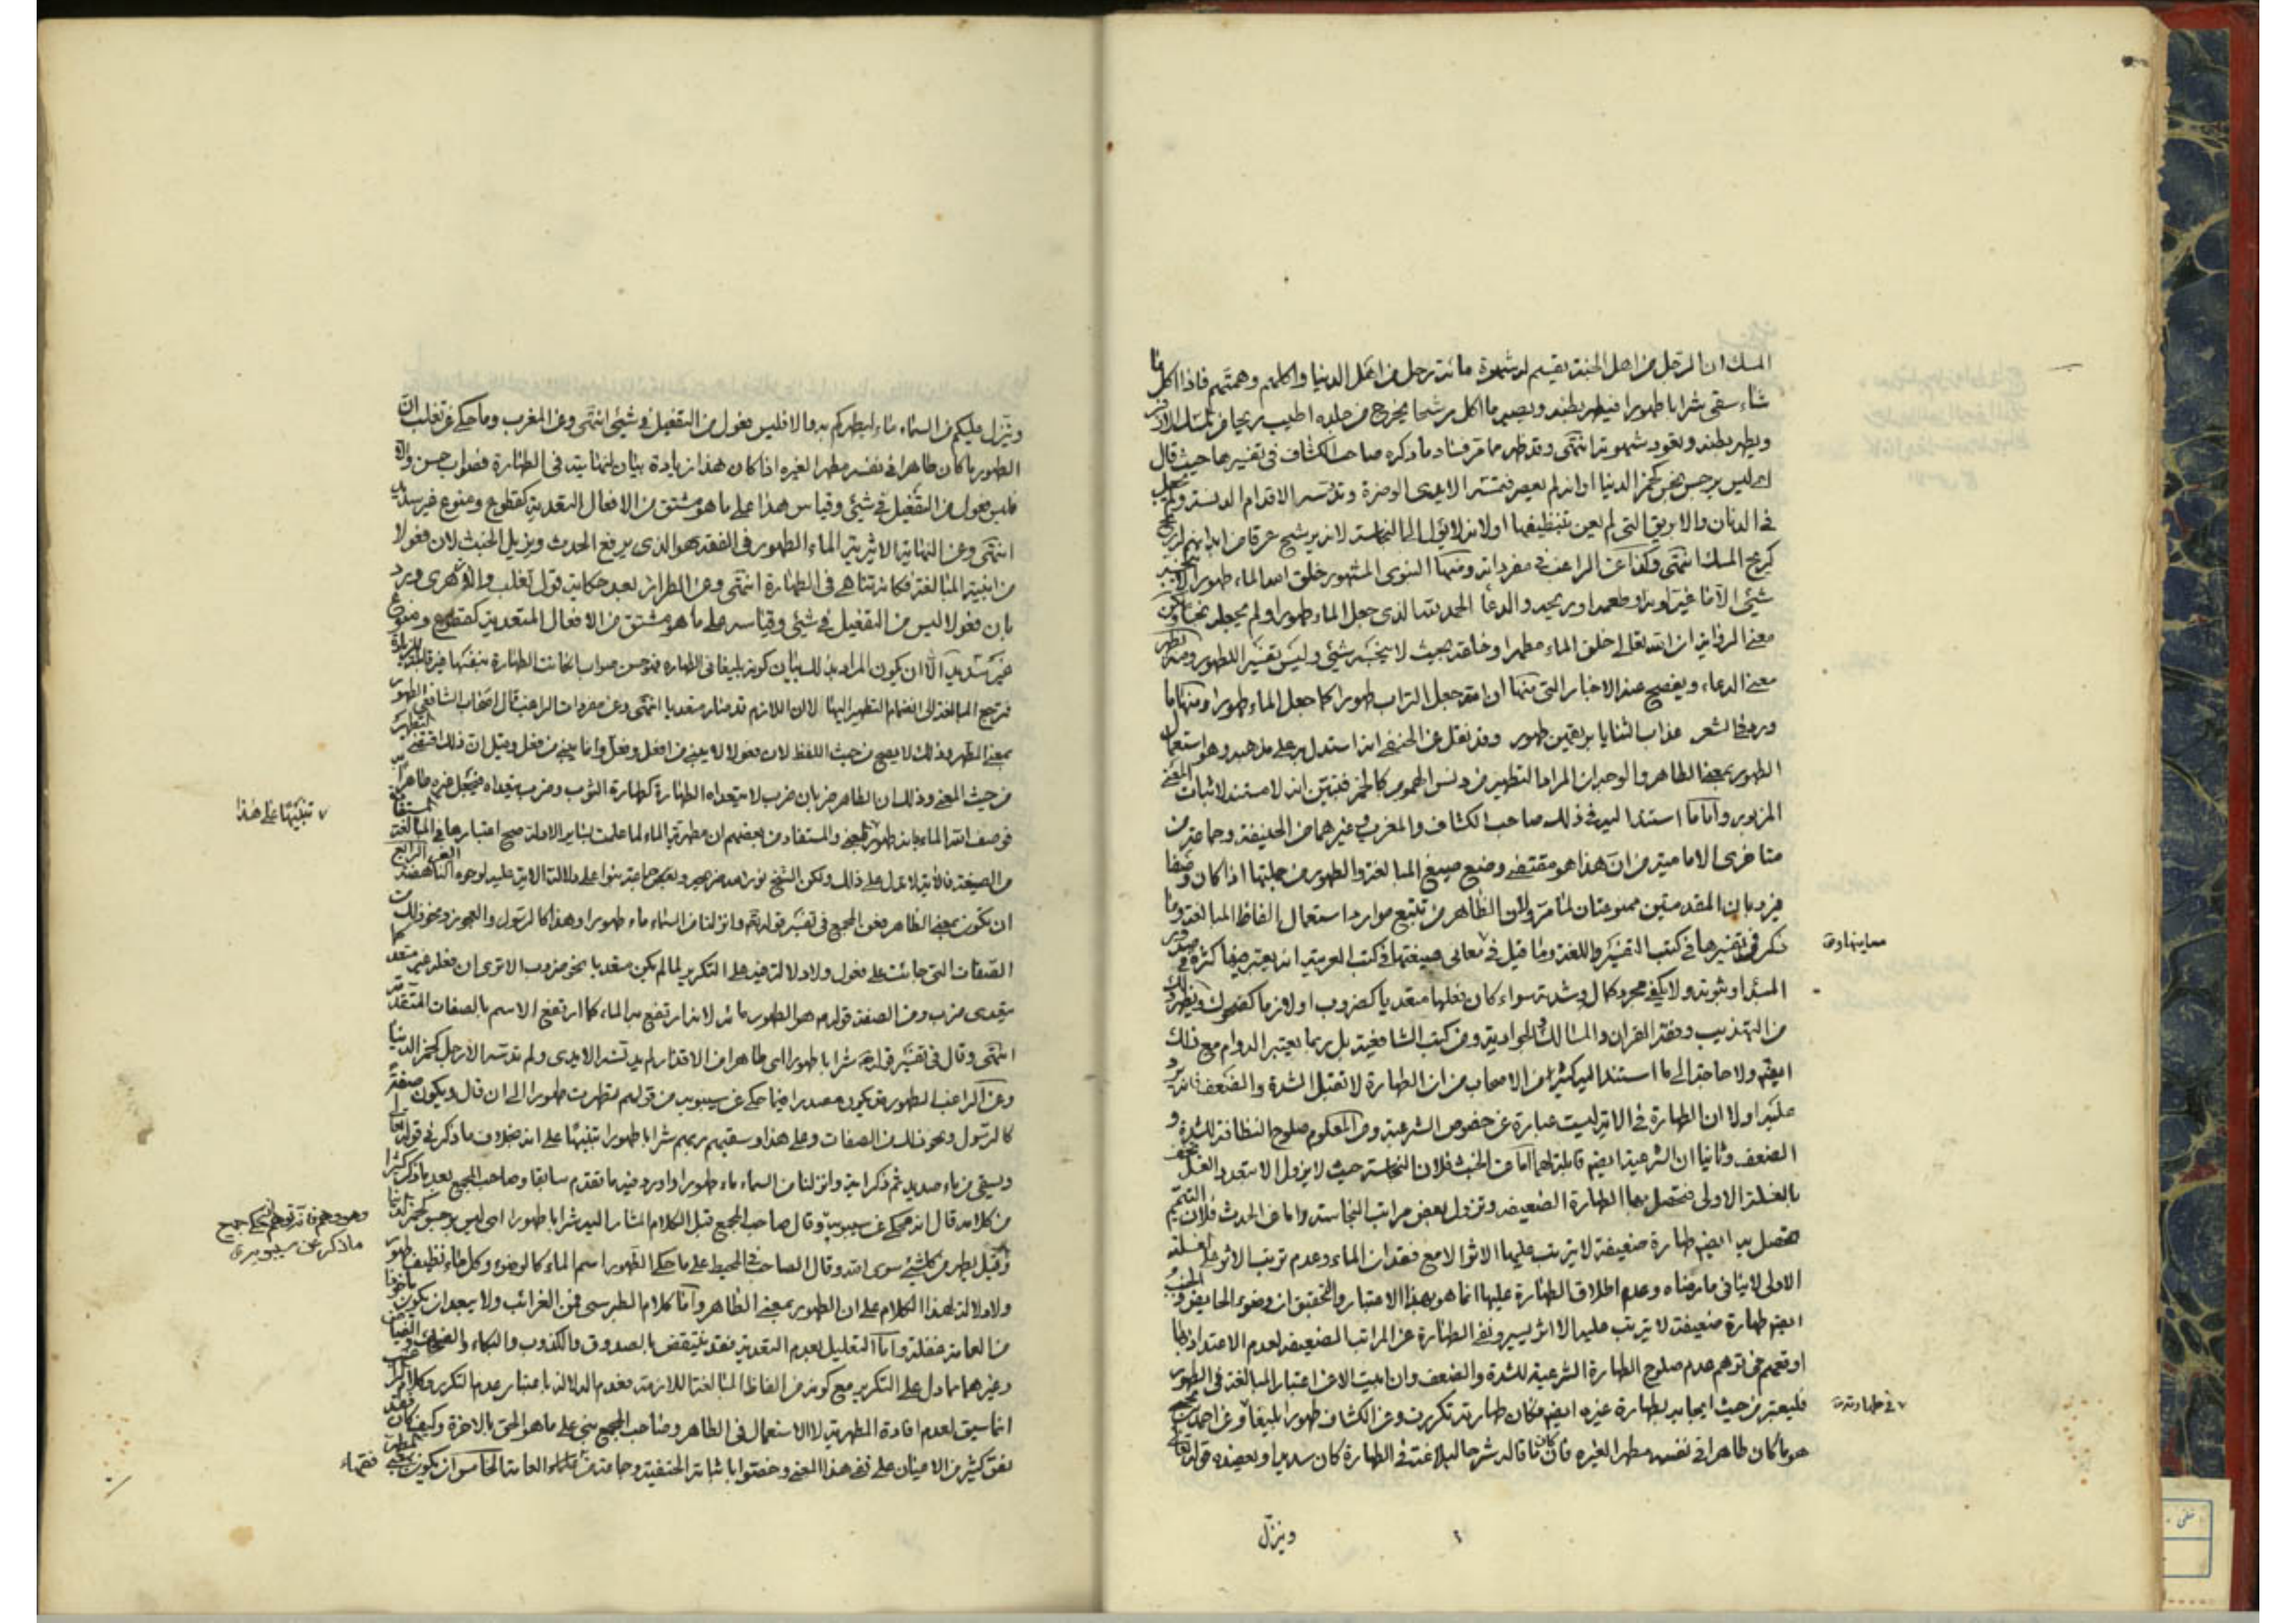 المسك ان الرجل من اهل الجنة يقسم له شهوة مائة رجل من اهل الدنيا واكلهم وهمتهم فاذا اكل ما
شاء سقى شرابا طهورا فيطهر بطنه ويصير ما اكل رشحا يخرج من جلده اطيب ريحا من المسك الاذفر
ويطهر بطنه وتعود شهوته انتهى وقد ظهر مما مر فساد ما ذكره صاحب الكشاف في تفسيرها حيث قال
اي ليس برجس نجس كخمر الدنيا او انه لم يعصر فتمسه الايدى الوضرة وتدوسه الاقدام الدنسة ولم يجعل
في الدنان والاباريق التي لم يعن بتنظيفها او لانه لا يؤل الى النجاسة لانه يرشح عرقا من ابدانهم له ريح
كريح المسك انتهى وكذا عن الراغب في مفرداته ومنها النبوى المشهور خلق الله الماء طهورا لا ينجسه
شيء الا ما غير لونه او طعمه او ريحه والدعا الحمد لله الذى جعل الماء طهورا ولم يجعله نجسا
معنى الرواية ان الله تعالى خلق الماء مطهرا وخلقه بحيث لا ينجسه شيء وليس تفسيرا للطهور ومنه يظهر
معنى الدعاء ويفصح عنه الاخبار التي منها ان الله جعل التراب طهورا كما جعل الماء طهورا ومنها ما
ورد في الشعر عذاب الثنايا ريقهن طهور وقد نقل عن الحنفى انه استدل به على مذهبه وهو استعمال
الطهور بمعنى الطاهر والوجه ان المراد التطهير من دنس الهموم كالخمر فتبين انه لا مستند لاثبات المعنى
المزبور واما ما استند اليه في ذلك صاحب الكشاف والمغرب وغيرهما من الحنيفة وجماعة من
متاخرى الامامية من ان هذا هو مقتضى وضع صيغ المبالغة والطهور من جملتها اذا كان وصفا
فيرد بان المقدمتين ممنوعتان لما مر ولان الظاهر من تتبع موارد استعمال الفاظ المبالغة وما
ذكر في تفسيرها في كتب التفسير واللغة وما قيل في معانى صيغتها في كتب العربية انه يعتبر فيها كثرة
المبدا وثبوته ولا يكفى مجرد كمال وشدة سواء كان فعلها متعديا كضروب او لازما كضحوك ويظهر ذلك
من التهذيب وفقه القران والمسالك الجوادية ومن كتب الشافعية بل ربما يعتبر الدوام مع ذلك
ايضا ولا حاجة الى ما استند اليه كثير من الاصحاب من ان الطهارة لا تقبل الشدة والضعف فانه يرد
عليه اولا ان الطهارة في الاية ليست عبارة عن خصوص الشرعية ومن المعلوم صلوح النظافة للشدة و
الضعف وثانيا ان الشرعية ايضا قابلة لهما اما من الخبث فلان النجاسة حيث لا يزول الا بتعدد الغسل
بالغسلة الاولى فتحصل بها الطهارة الضعيفة وتزول بعض مراتب النجاسة واما من الحدث فلان التيمم
تحصل به ايضا طهارة ضعيفة لا يترتب عليها الاثر الا مع فقدان الماء وعدم ترتب الاثر على الغسلة
الاولى لا ينافى ما رمناه وعدم اطلاق الطهارة عليها انما هو بهذا الاعتبار والتحقيق ان وضوء الحايض والجنب
ايضا طهارة ضعيفة لا يترتب عليه الا اثر يسير ونفى الطهارة عن المراتب الضعيفة لعدم الاعتداد بها
او تعمم فمن توهم عدم صلوح الطهارة الشرعية للشدة والضعف وان ابيت الا عن اعتبار المبالغة في الطهور
فليعتبر من حيث ايجابه لطهارة غيره ايضا فكان طهارته تكررت وعن الكشاف طهورا بليغا وعن احمد بن يحيى
هو ما كان طاهرا في نفسه مطهرا لغيره فان كان ما قاله شرحا لبلاغته في الطهارة كان سديدا ويعضده قوله تعالى
وينزل
وينزل عليكم من السماء ماء ليطهركم به والا فليس فعول من التفعيل في شيء انتهى وعن المغرب وما حكى عن ثعلب ان
الطهور ما كان طاهرا في نفسه مطهرا لغيره اذا كان هذا زيادة بيان لنهايته في الطهارة فصواب حسن والا
فليس فعول من التفعيل في شيء وقياس هذا على ما هو مشتق من الافعال المتعدية كقطوع ومنوع غير سديد
انتهى وعن النهاية الاثيرية الماء الطهور في الفقه هو الذى يرفع الحدث ويزيل الخبث لان فعولا
من ابنية المبالغة فكانه تناهى في الطهارة انتهى وعن الطراز بعد حكاية قول ثعلب والازهرى ويرد
بان فعولا ليس من التفعيل في شيء وقياسه على ما هو مشتق من الافعال المتعدية كقطوع ومنوع
غير سديد الا ان يكون المراد بذلك بيان كونه بليغا في الطهارة فهو حسن صواب اذ كانت الطهارة بنفسها غير قابلة للزيادة
فترجع المبالغة الى انضمام التطهير اليها لا ان اللازم قد صار متعديا انتهى وعن مفردات الراغب قال اصحاب الشافعى الطهور
بمعنى المطهر وذلك لا يصح من حيث اللفظ لان فعولا لا يبنى من افعل وفعل وانما يبنى من فعل وقيل ان ذلك اقتضى التطهير
من حيث المعنى وذلك ان الطاهر ضربان ضرب لا يتعداه الطهارة كطهارة الثوب وضرب يتعداه فيجعل غيره طاهرا به
فوصف الله الماء بانه طهور والمستفاد من بعضهم ان مطهرية الماء لما علمت بساير الادلة صح اعتبارها في المبالغة المستفادة
من الصيغة فالاية لا تدل على ذلك ولكن الشيخ وبعض جماعة بنوا على دلالة الاية عليه لوجوه الرابع
ان تكون بمعنى الطاهر فعن المجمع في تفسير قوله تعالى وانزلنا من السماء ماء طهورا وهذا كالرسول والعجوز ونحو ذلك من
الصفات التي جائت على فعول ولا دلالة فيه على التكرير لما لم يكن متعديا نحو ضروب الا ترى ان فعله غير متعد كما
يتعدى ضرب ومن الصفة قوله هو الطهور مائه لانه ارتفع به الماء كما ارتفع الاسم بالصفات المتقدمة
انتهى وقال في تفسير قوله تعالى شرابا طهورا اى طاهرا من الاقذار لم يدنسه الايدى ولم تدسه الارجل كخمر الدنيا
وعن الراغب الطهور قد يكون مصدرا فيما حكى عن سيبويه من قولهم تطهرت طهورا الى ان قال ويكون صفة
كالرسول ونحو ذلك من الصفات وعلى هذا وسقيهم ربهم شرابا طهورا تنبيها على انه بخلاف ما ذكر في قوله تعالى
ويسقى من ماء صديد ثم ذكر اية وانزلنا من السماء ماء طهورا واورد فيه ما تقدم سابقا وصاحب المجمع بعد ما ذكر كثيرا
من كلامه قال انه محكى عن سيبويه وقال صاحب المجمع قبل الكلام المشار اليه شرابا طهورا اى ليس برجس كخمر الدنيا
وقيل يطهر من كل شيء سوى الله وقال الصاحب في المحيط على ما حكى الطهور اسم الماء كالوضوء وكل ماء نظيف طهور
ولا دلالة لهذا الكلام على ان الطهور بمعنى الطاهر واما كلام الطبرسى فمن الغرائب ولا يبعد ان يكون ماخوذا
من العامة غفلة واما التعليل بعدم التعدية فقد ينتقض بالصدوق والكذوب والبكاء
وغيرهما مما دل على التكرير مع كونه من الفاظ المبالغة اللازمة فعدم الدلالة باعتبار عدم التكرر
انما سيق لعدم افادة المطهرية لا الاستعمال في الطاهر وصاحب المجمع بنى على ما هو الحق بالاخرة وكيف كان فقد
نص كثير من الاعيان على نفى هذا المعنى وخصوا اثباته بالحنفية وجماعة من العامة الخامس ان يكون بمعنى المطهر
تنبيها على هذا
ما ذكر عن سيبويه
فقهاء